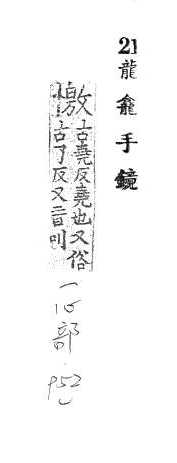 21龍龕手鏡
憿古堯反堯也又俗
古了反又音叫
一心部 p52